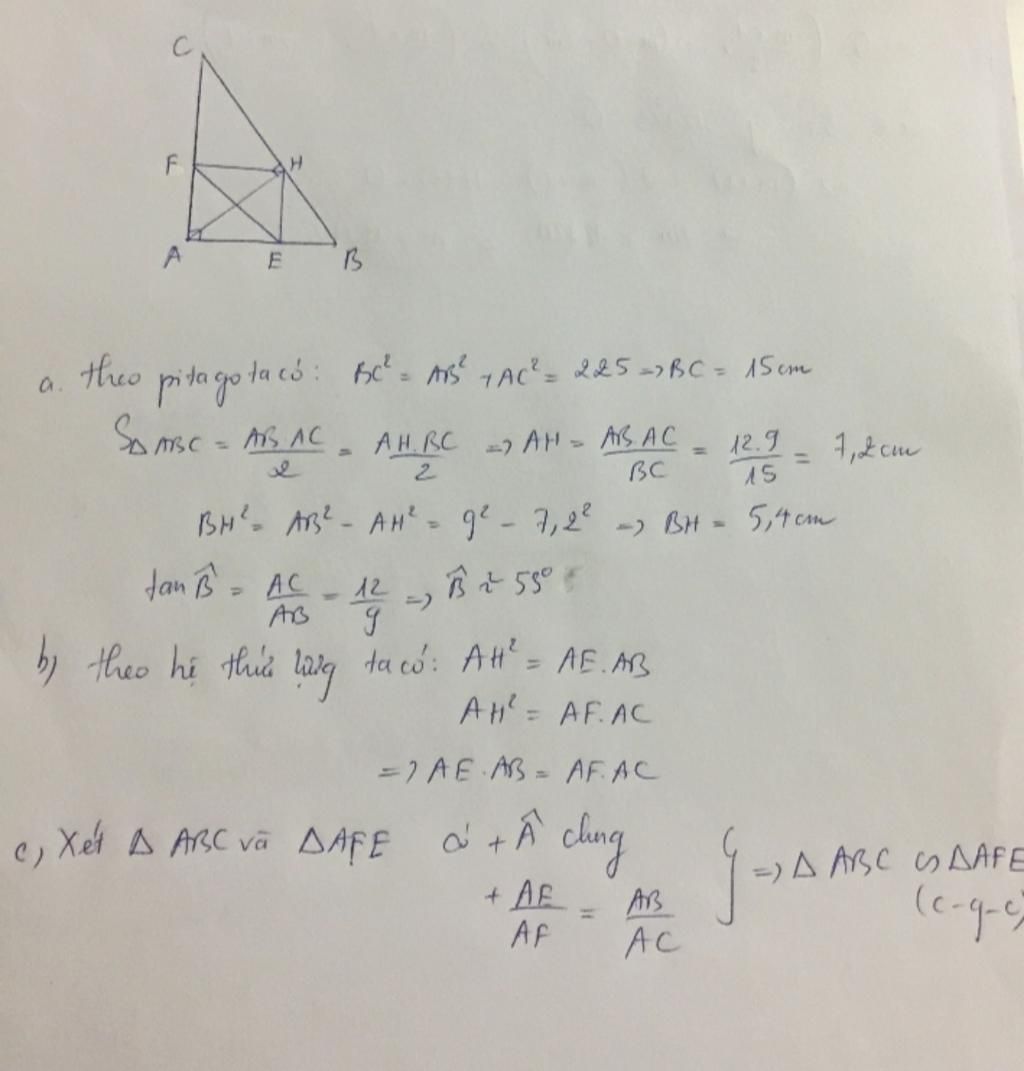 C
F H
A E B
a. theo pitago ta có: BC² = AB² + AC² = 225 => BC = 15cm
S△ABC = AB.AC/2 = AH.BC/2 => AH = AB.AC/BC = 12.9/15 = 7,2cm
BH² = AB² - AH² = 9² - 7,2² => BH = 5,4cm
tan B̂ = AC/AB = 12/9 => B̂ ≈ 53°
b) theo hệ thức lượng ta có: AH² = AE.AB
AH² = AF.AC
=> AE.AB = AF.AC
c, Xét △ ABC và △AFE có + Â chung
+ AE/AF = AB/AC } => △ ABC ∽ △AFE
(c-g-c)